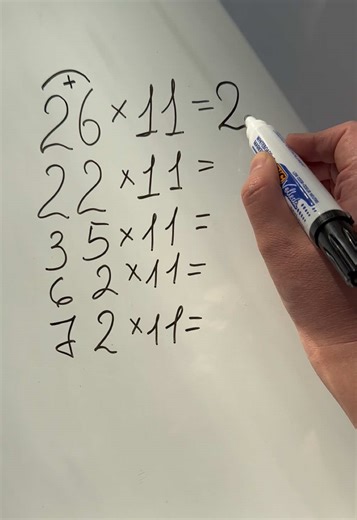 +
26×11=2
22×11=
35×11=
62×11=
72×11=